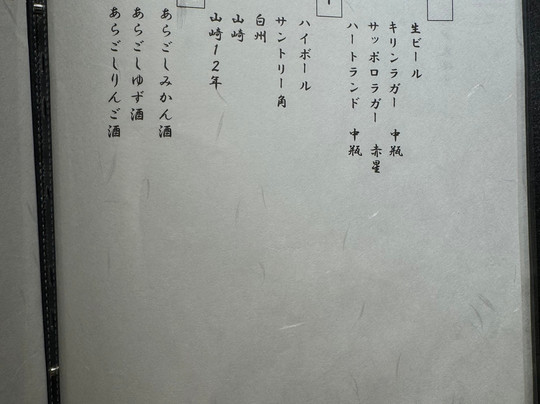 生ビール
キリンラガー 中瓶
サッポロラガー 赤星
ハートランド 中瓶
ハイボール
サントリー角
白州
山崎
山崎12年
あらごしみかん酒
あらごしゆず酒
あらごしりんご酒